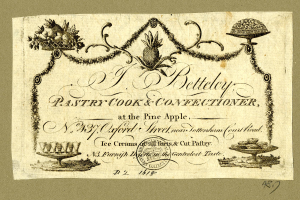 J. Betteley
PASTRY COOK & CONFECTIONER,
at the Pine Apple.
No. 337 Oxford Street, near Tottenham Court Road.
Ice Creams of all Sorts, & Cut Pastry.
N.B. Furnish Deserts in the Genteelest Taste